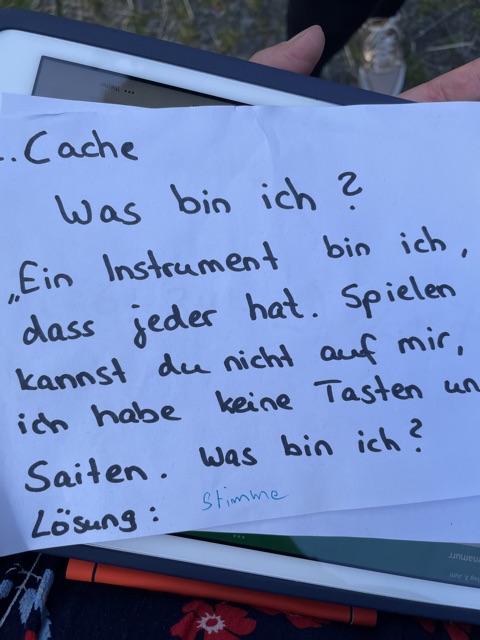 .. Cache
Was bin ich?
„Ein Instrument bin ich,
dass jeder hat. Spielen
kannst du nicht auf mir,
ich habe keine Tasten un
Saiten. Was bin ich?
Lösung: Stimme